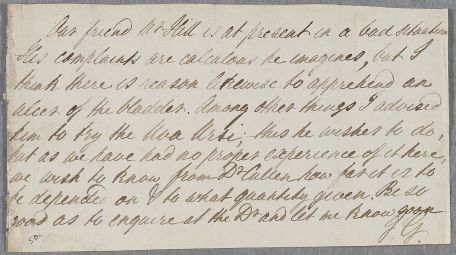 Our friend Mr Hill is at present in a bad situation
His complaints are calculous he imagines, but I
think there is reason likewise to apprehend an
ulcer of the bladder. Among other things I advised
him to try the Uva Ursi; this he wishes to do,
but as we have had no proper experience of it here,
we wish to know from Dr Cullen how far it is to
be depended on & to what quantity given. Be so
good as to enquire at the Dr and let me know